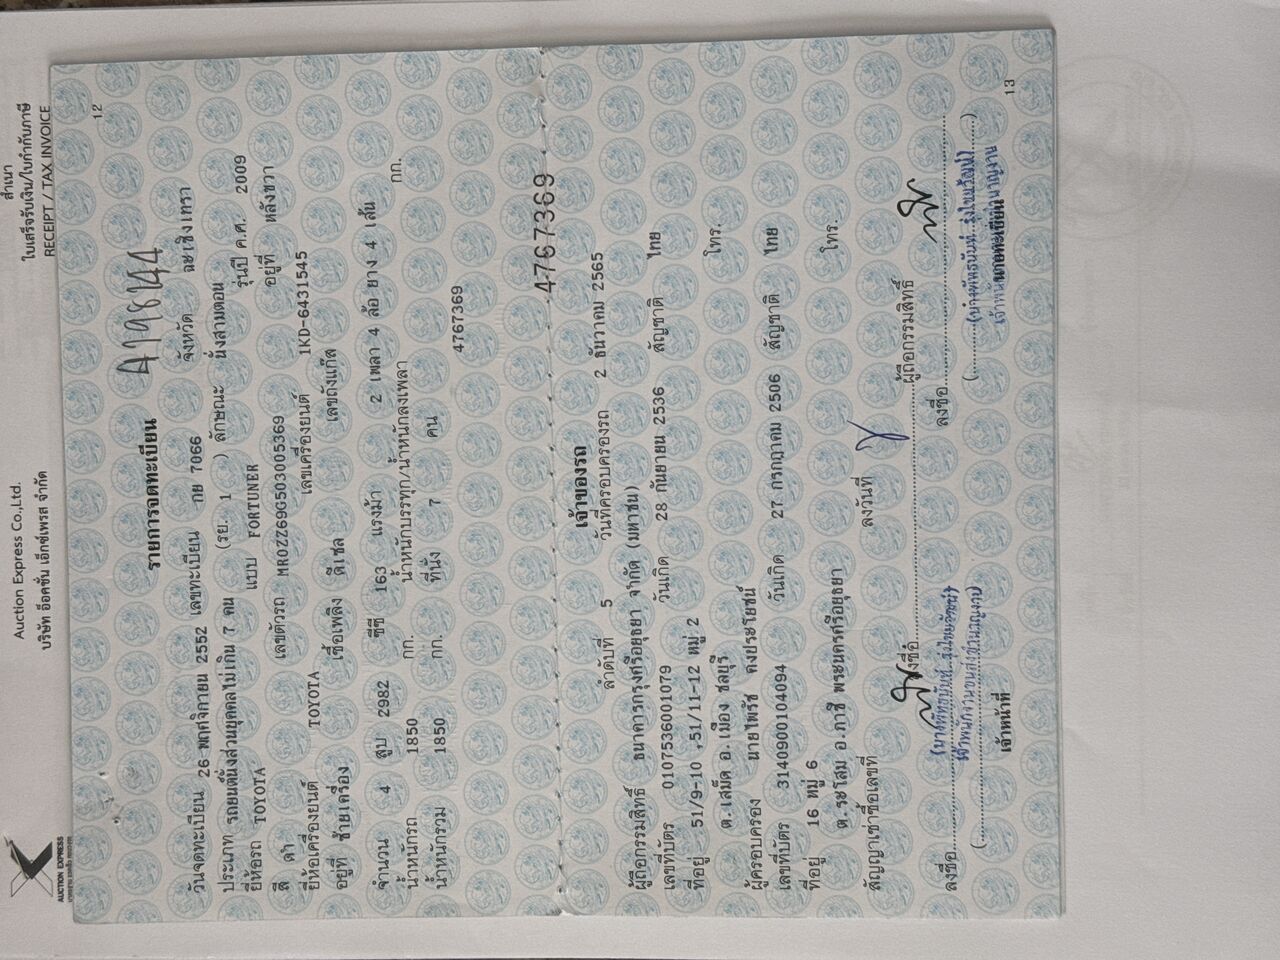 สำเนา
ใบเสร็จรับเงิน/ใบกำกับภาษี
RECEIPT / TAX INVOICE
Auction Express Co.,Ltd.
บริษัท อ๊อคชั่น เอ็กซ์เพรส จำกัด
AUCTION EXPRESS
12
รายการจดทะเบียน
วันจดทะเบียน 26 พฤศจิกายน 2552 เลขทะเบียน กย 7066 จังหวัด ฉะเชิงเทรา
ประเภท รถยนต์นั่งส่วนบุคคลไม่เกิน 7 คน (รย. 1 ) ลักษณะ นั่งสามตอน
ยี่ห้อรถ TOYOTA แบบ FORTUNER รุ่นปี ค.ศ. 2009
สี ดำ เลขตัวรถ MROZZ69G503005369 อยู่ที่ หลังขวา
ยี่ห้อเครื่องยนต์ TOYOTA เลขเครื่องยนต์ 1KD-6431545
อยู่ที่ ซ้ายเครื่อง เชื้อเพลิง ดีเซล เลขถังแก๊ส
จำนวน 4 สูบ 2982 ซีซี 163 แรงม้า 2 เพลา 4 ล้อ ยาง 4 เส้น
น้ำหนักรถ 1850 กก. น้ำหนักบรรทุก/น้ำหนักลงเพลา กก.
น้ำหนักรวม 1850 กก. ที่นั่ง 7 คน 4767369
4767369
เจ้าของรถ
ลำดับที่ 5 วันที่ครอบครองรถ 2 ธันวาคม 2565
ผู้ถือกรรมสิทธิ์ ธนาคารกรุงศรีอยุธยา จำกัด (มหาชน)
เลขที่บัตร 0107536001079 วันเกิด 28 กันยายน 2536 สัญชาติ ไทย
ที่อยู่ 51/9-10 ,51/11-12 หมู่ 2
ต.เสม็ด อ.เมือง ชลบุรี โทร.
ผู้ครอบครอง นายไพรัช คงประโยชน์
เลขที่บัตร 3140900104094 วันเกิด 27 กรกฎาคม 2506 สัญชาติ ไทย
ที่อยู่ 16 หมู่ 6
ต.ระโสม อ.ภาชี พระนครศรีอยุธยา โทร.
สัญญาเช่าซื้อเลขที่ ลงวันที่
ลงชื่อ ผู้ถือกรรมสิทธิ์
ลงชื่อ ลงชื่อ
เจ้าหน้าที่ นายทะเบียน
13